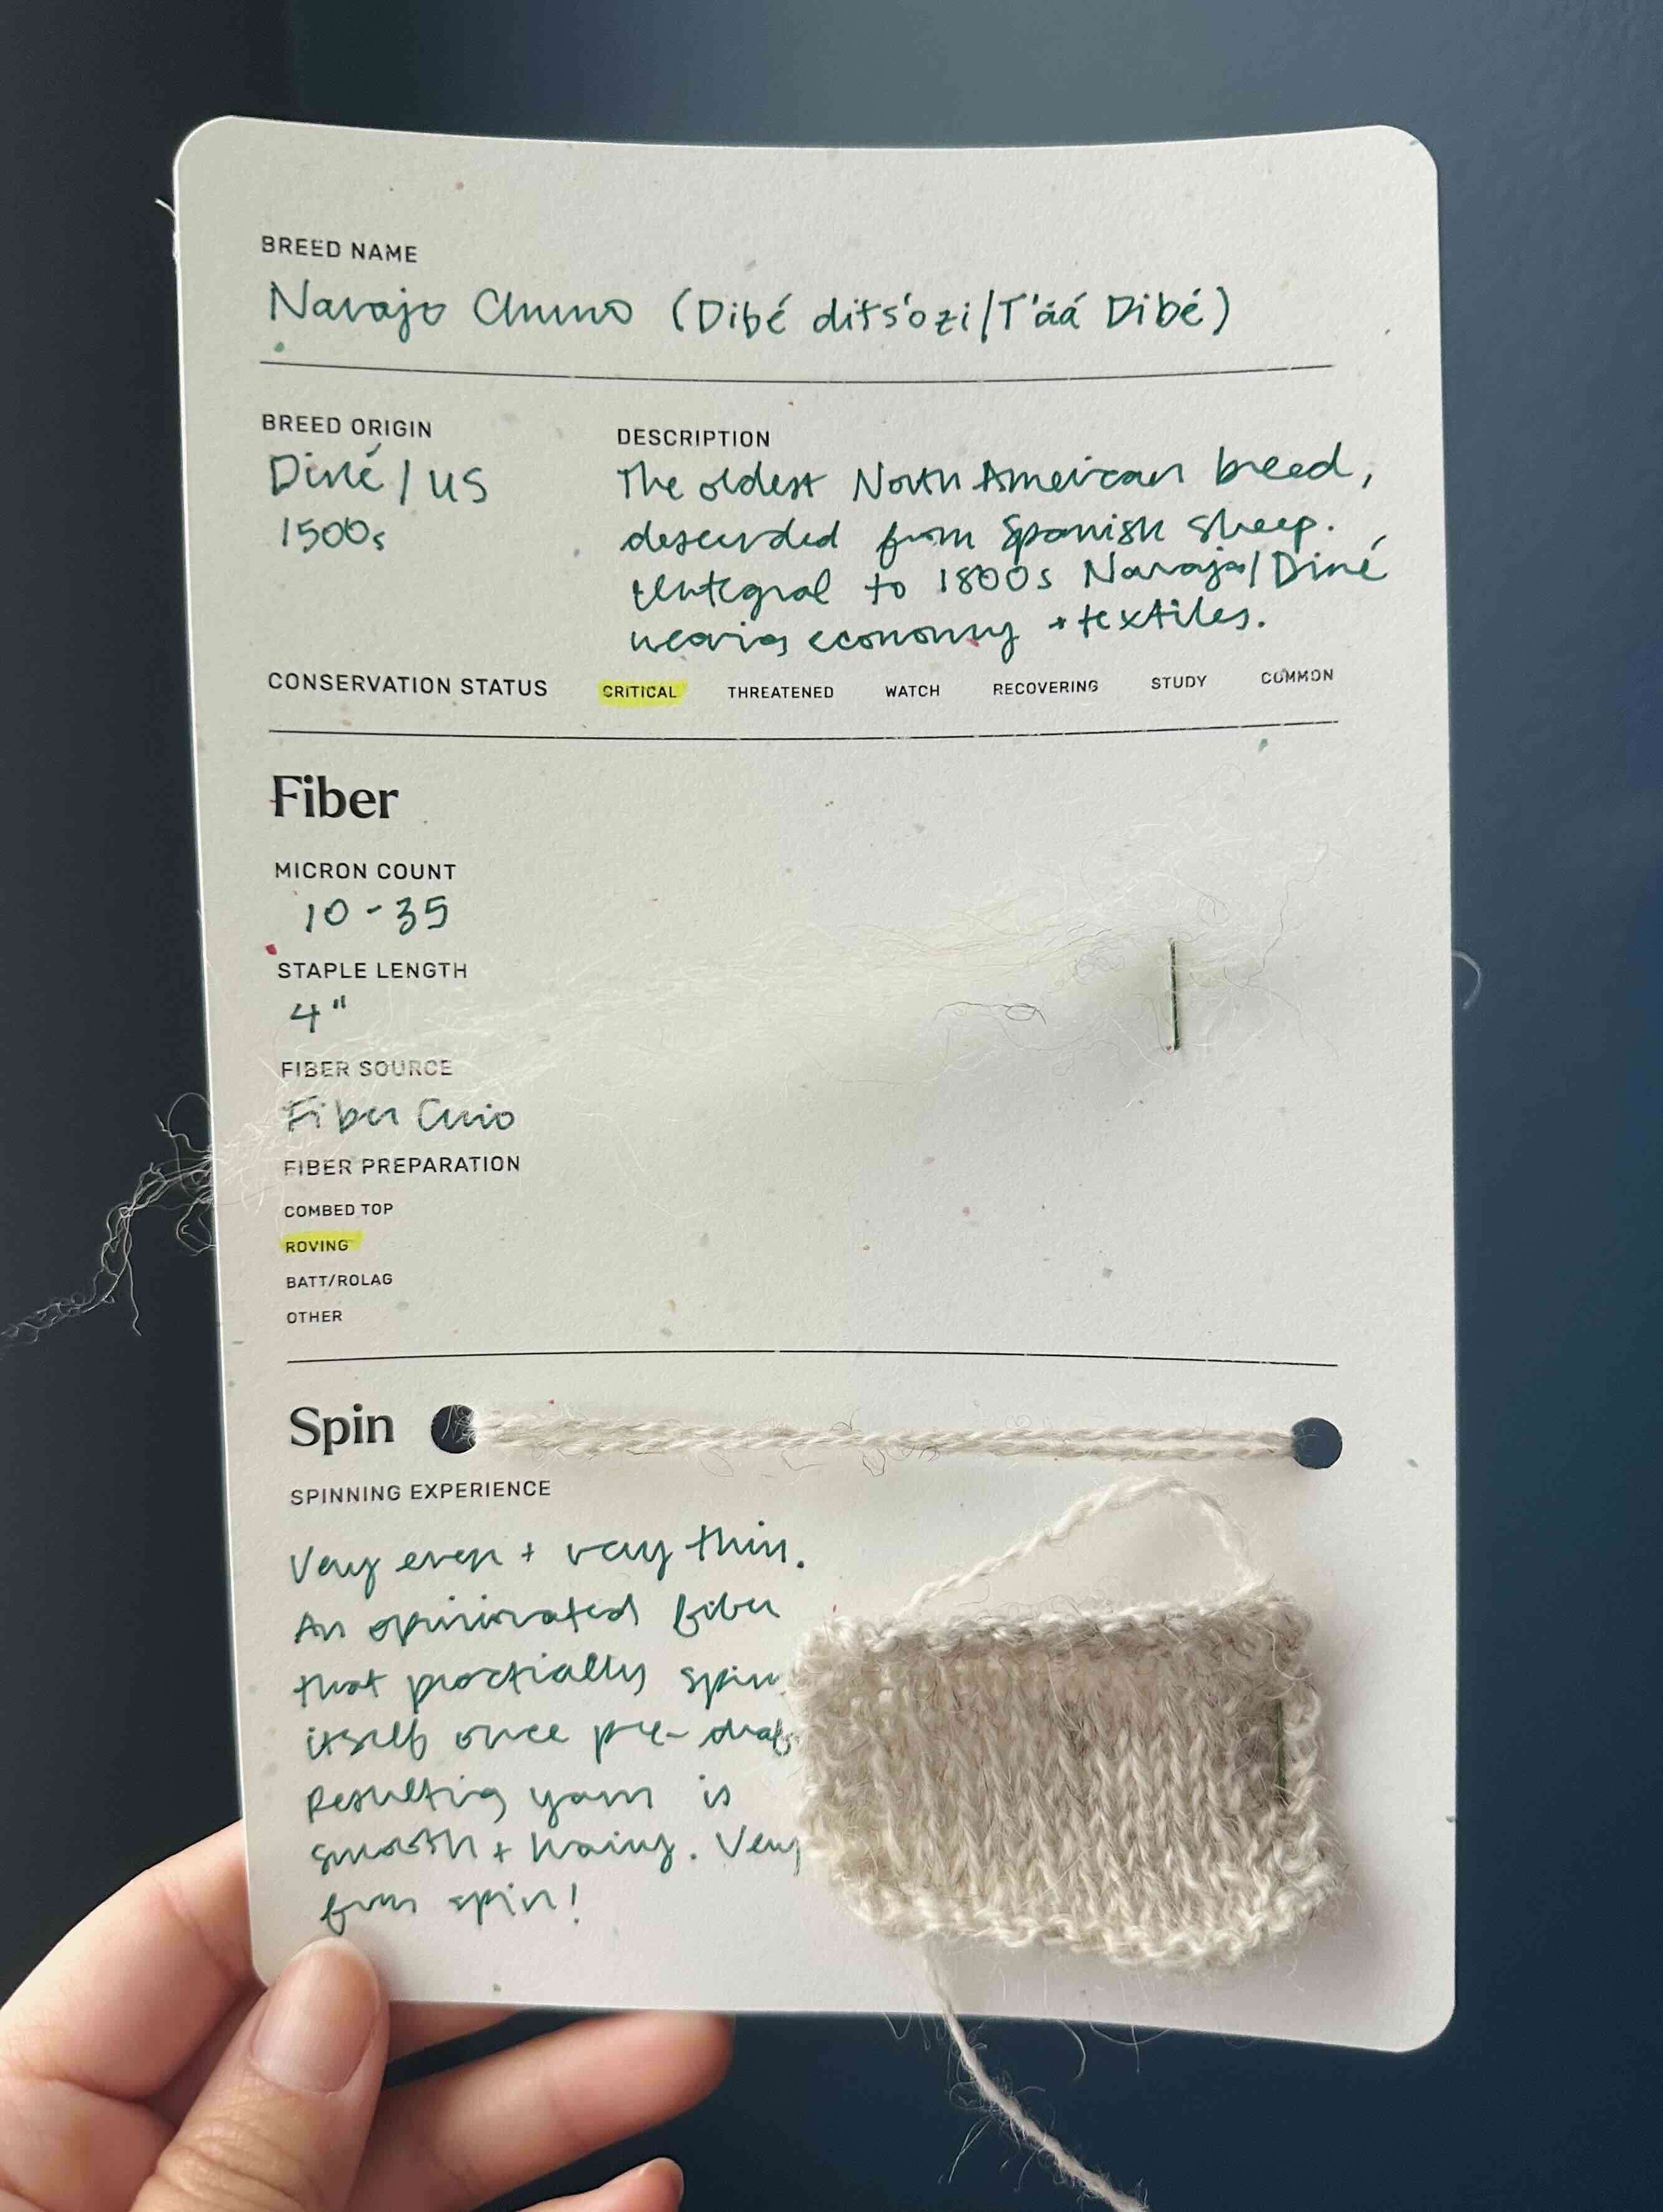 BREED NAME
Navajo Churro (Dibé dits'ozi/T'áá Dibé)
BREED ORIGIN
Diné/US
1500s
DESCRIPTION
The oldest North American breed,
descended from Spanish sheep.
Integral to 1800s Navajo/Diné
weaving economy + textiles.
CONSERVATION STATUS CRITICAL THREATENED WATCH RECOVERING STUDY COMMON
Fiber
MICRON COUNT
10-35
STAPLE LENGTH
4"
FIBER SOURCE
Fiber Curio
FIBER PREPARATION
COMBED TOP
ROVING
BATT/ROLAG
OTHER
Spin
SPINNING EXPERIENCE
Very even + very thin.
An opinionated fiber
that practially spins
itself once pre-
Resulting yarn is
smooth + hairy. Very
fun spin!